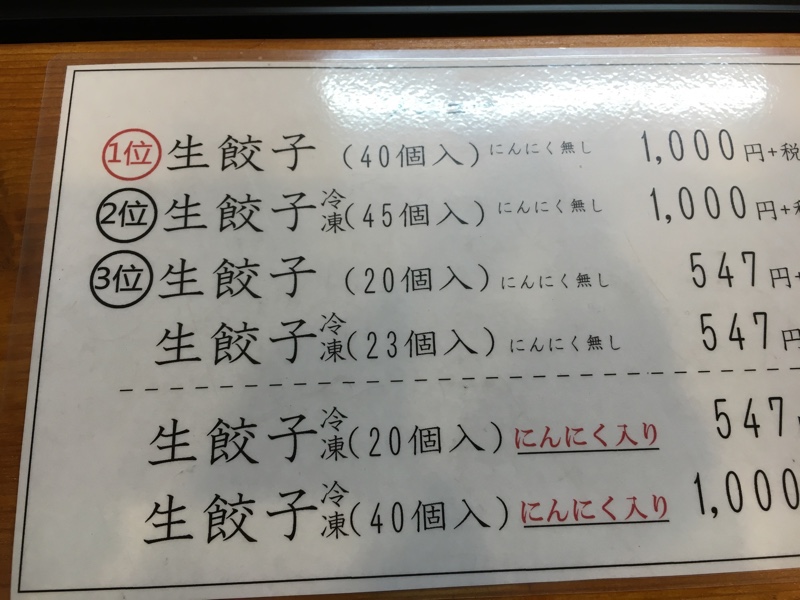 1位 生餃子 (40個入) にんにく無し 1,000円+税
2位 生餃子 冷凍 (45個入) にんにく無し 1,000円+
3位 生餃子 (20個入) にんにく無し 547円+
生餃子 冷凍 (23個入) にんにく無し 547円
生餃子 冷凍 (20個入) にんにく入り 547
生餃子 冷凍 (40個入) にんにく入り 1,000